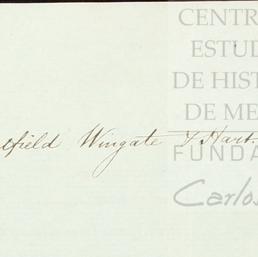 CENTR
ESTUD
DE HIST
DE ME
lfield Wingate & Hart.
FUNDA
Carlos